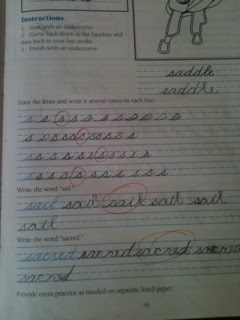 Instructions
1. Start with an undercurve.
2. Curve back down to the baseline and
then back to your last stroke.
3. Finish with an undercurve.
saddle
saddle
Trace the letter and write it several times on each line.
s s s s s s s s s s
s s s s s s s s s
s s s s s s s s s
s s s s s s s s s s
Write the word "sail."
sail sail sail sail sail
sail
Write the word "sacred."
sacred sacred sacred sacred
sacred
Provide extra practice as needed on separate lined paper.